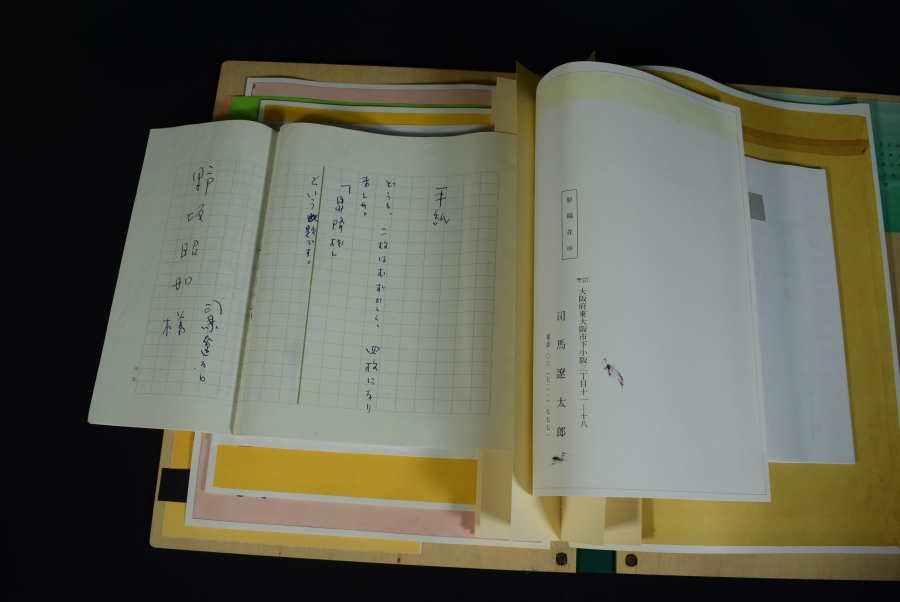 大阪府東大阪市下小阪三丁目十一—十八
原稿在中
司馬遼太郎
手紙
どうも、二枚はむずかしく、四枚になり
ました。
という題です。
司馬遼太郎
野坂昭如様